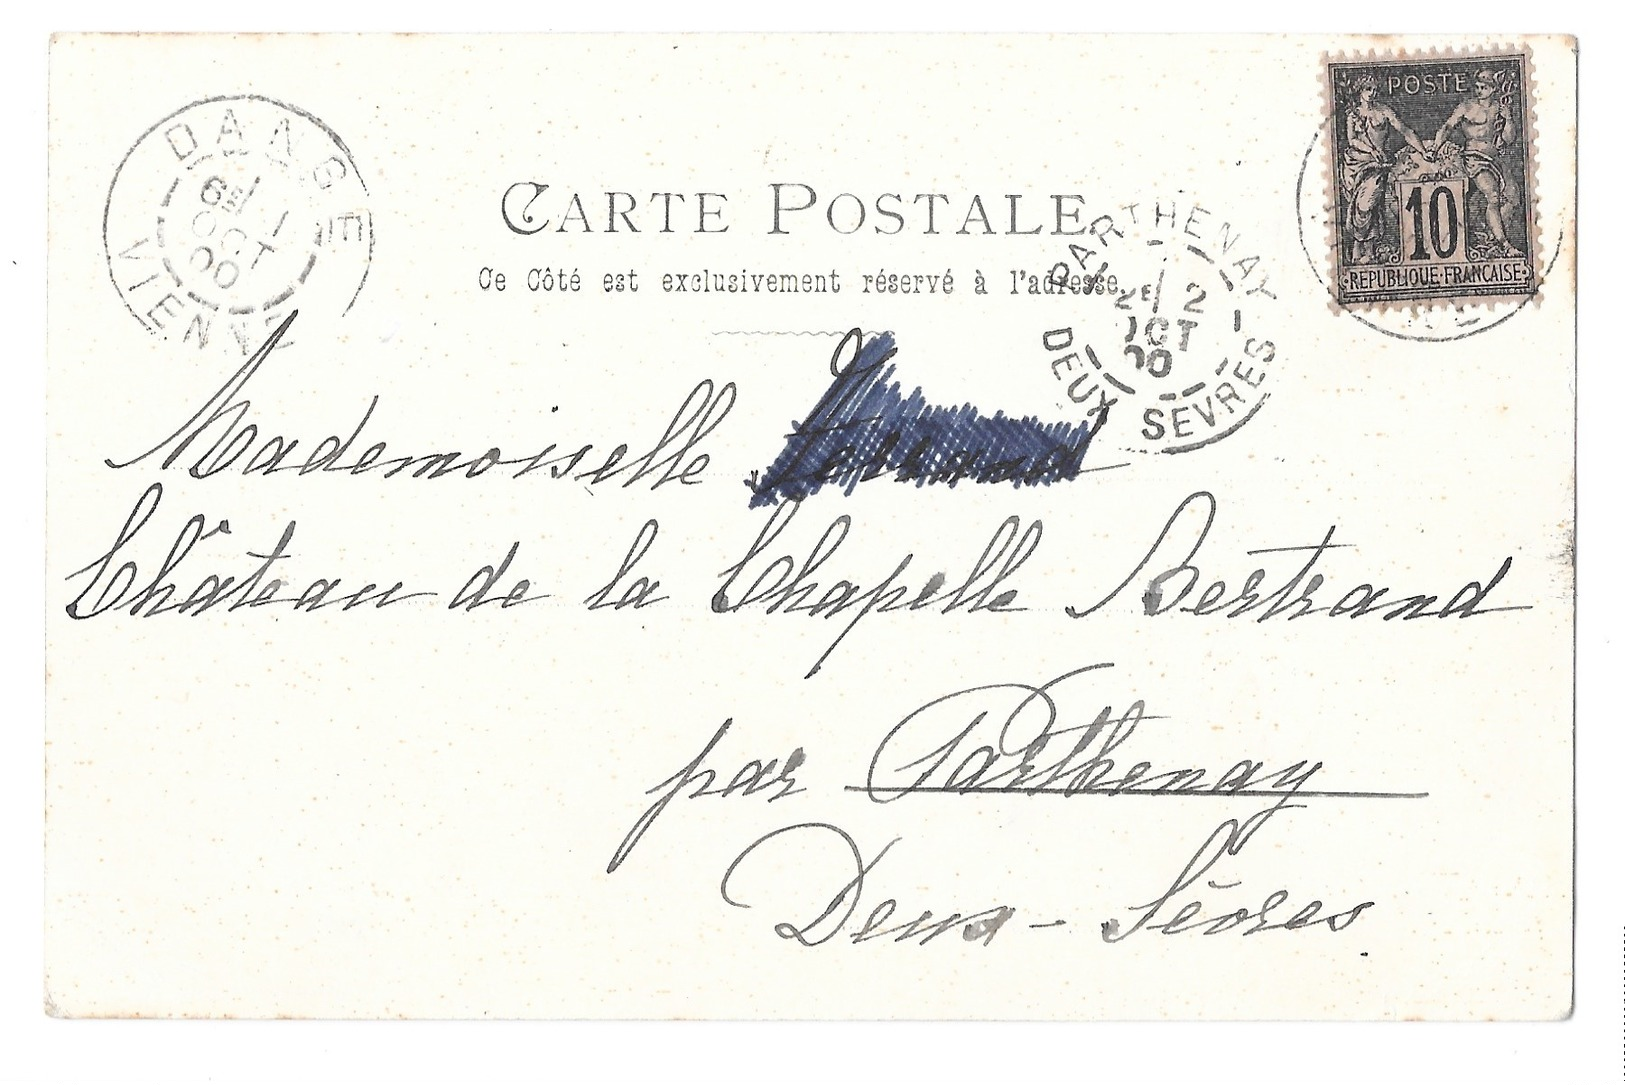 DANGE
6E 1
OCT
00
VIENNE
POSTE
10
REPUBLIQUE FRANCAISE
CARTE POSTALE
Ce Côté est exclusivement réservé à l'adresse
PARTHENAY
2E 2
OCT
00
DEUX SEVRES
Mademoiselle
Château de la Chapelle Bertrand
par Parthenay
Deux-Sèvres